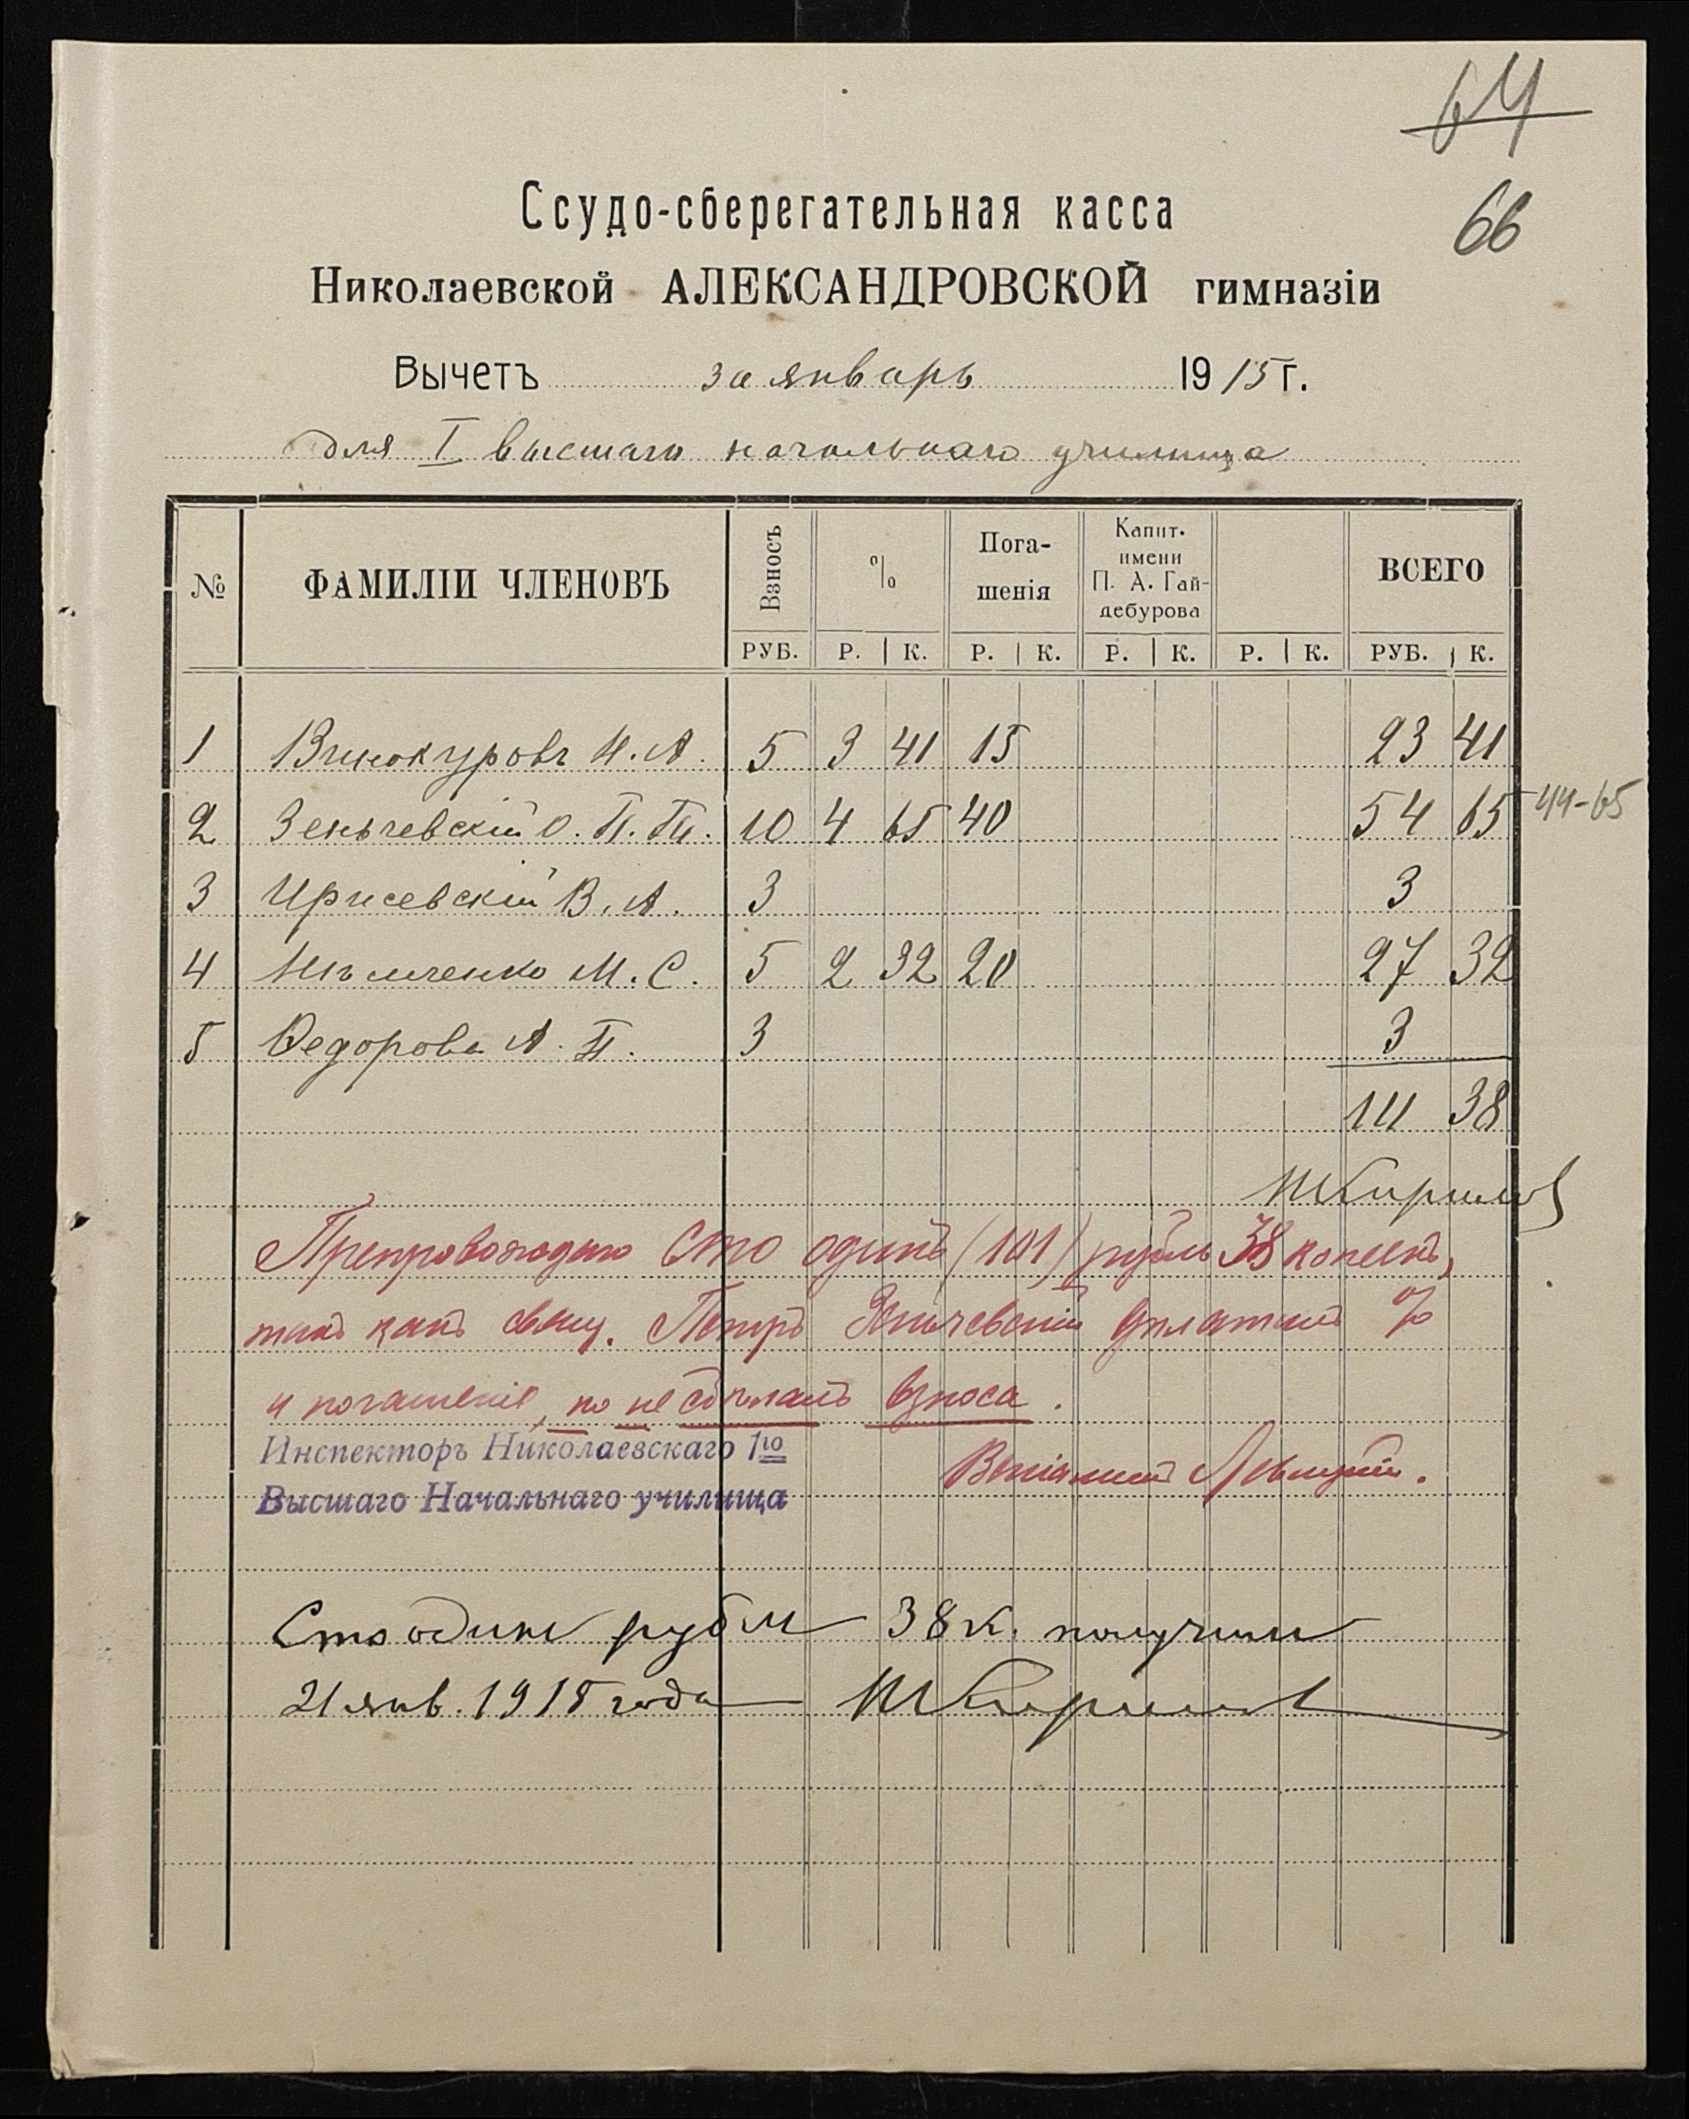 64
66
Ссудо-сберегательная касса
Николаевской АЛЕКСАНДРОВСКОЙ гимназіи
Вычетъ за январь 1915 г.
для I высшаго начальнаго училища
№ ФАМИЛІИ ЧЛЕНОВЪ Взносъ % Пога-шенія Капит. имени П. А. Гай-дебурова ВСЕГО
РУБ. Р. К. Р. К. Р. К. Р. К. РУБ. К.
1 Винокуровъ Н. А. 5 3 41 15 23 41
2 Зеньчевскій О. П. П. 10 4 65 40 54 65 44-65
3 Ирисевскій В. А. 3 3
4 Нѣмченко М. С. 5 2 32 20 27 32
5 Ѳедорова А. П. 3 3
111 38
Препровождаю сто одинъ (101) рубль 38 копеекъ,
такъ какъ свящ. Петръ Зеньчевскій уплатилъ %
и погашеніе, но не сдѣлалъ взноса.
Инспекторъ Николаевскаго 1го
Высшаго Начальнаго училища
Веніаминъ Левицкій.
Сто один рубль 38 к. получил
21 янв. 1915 года